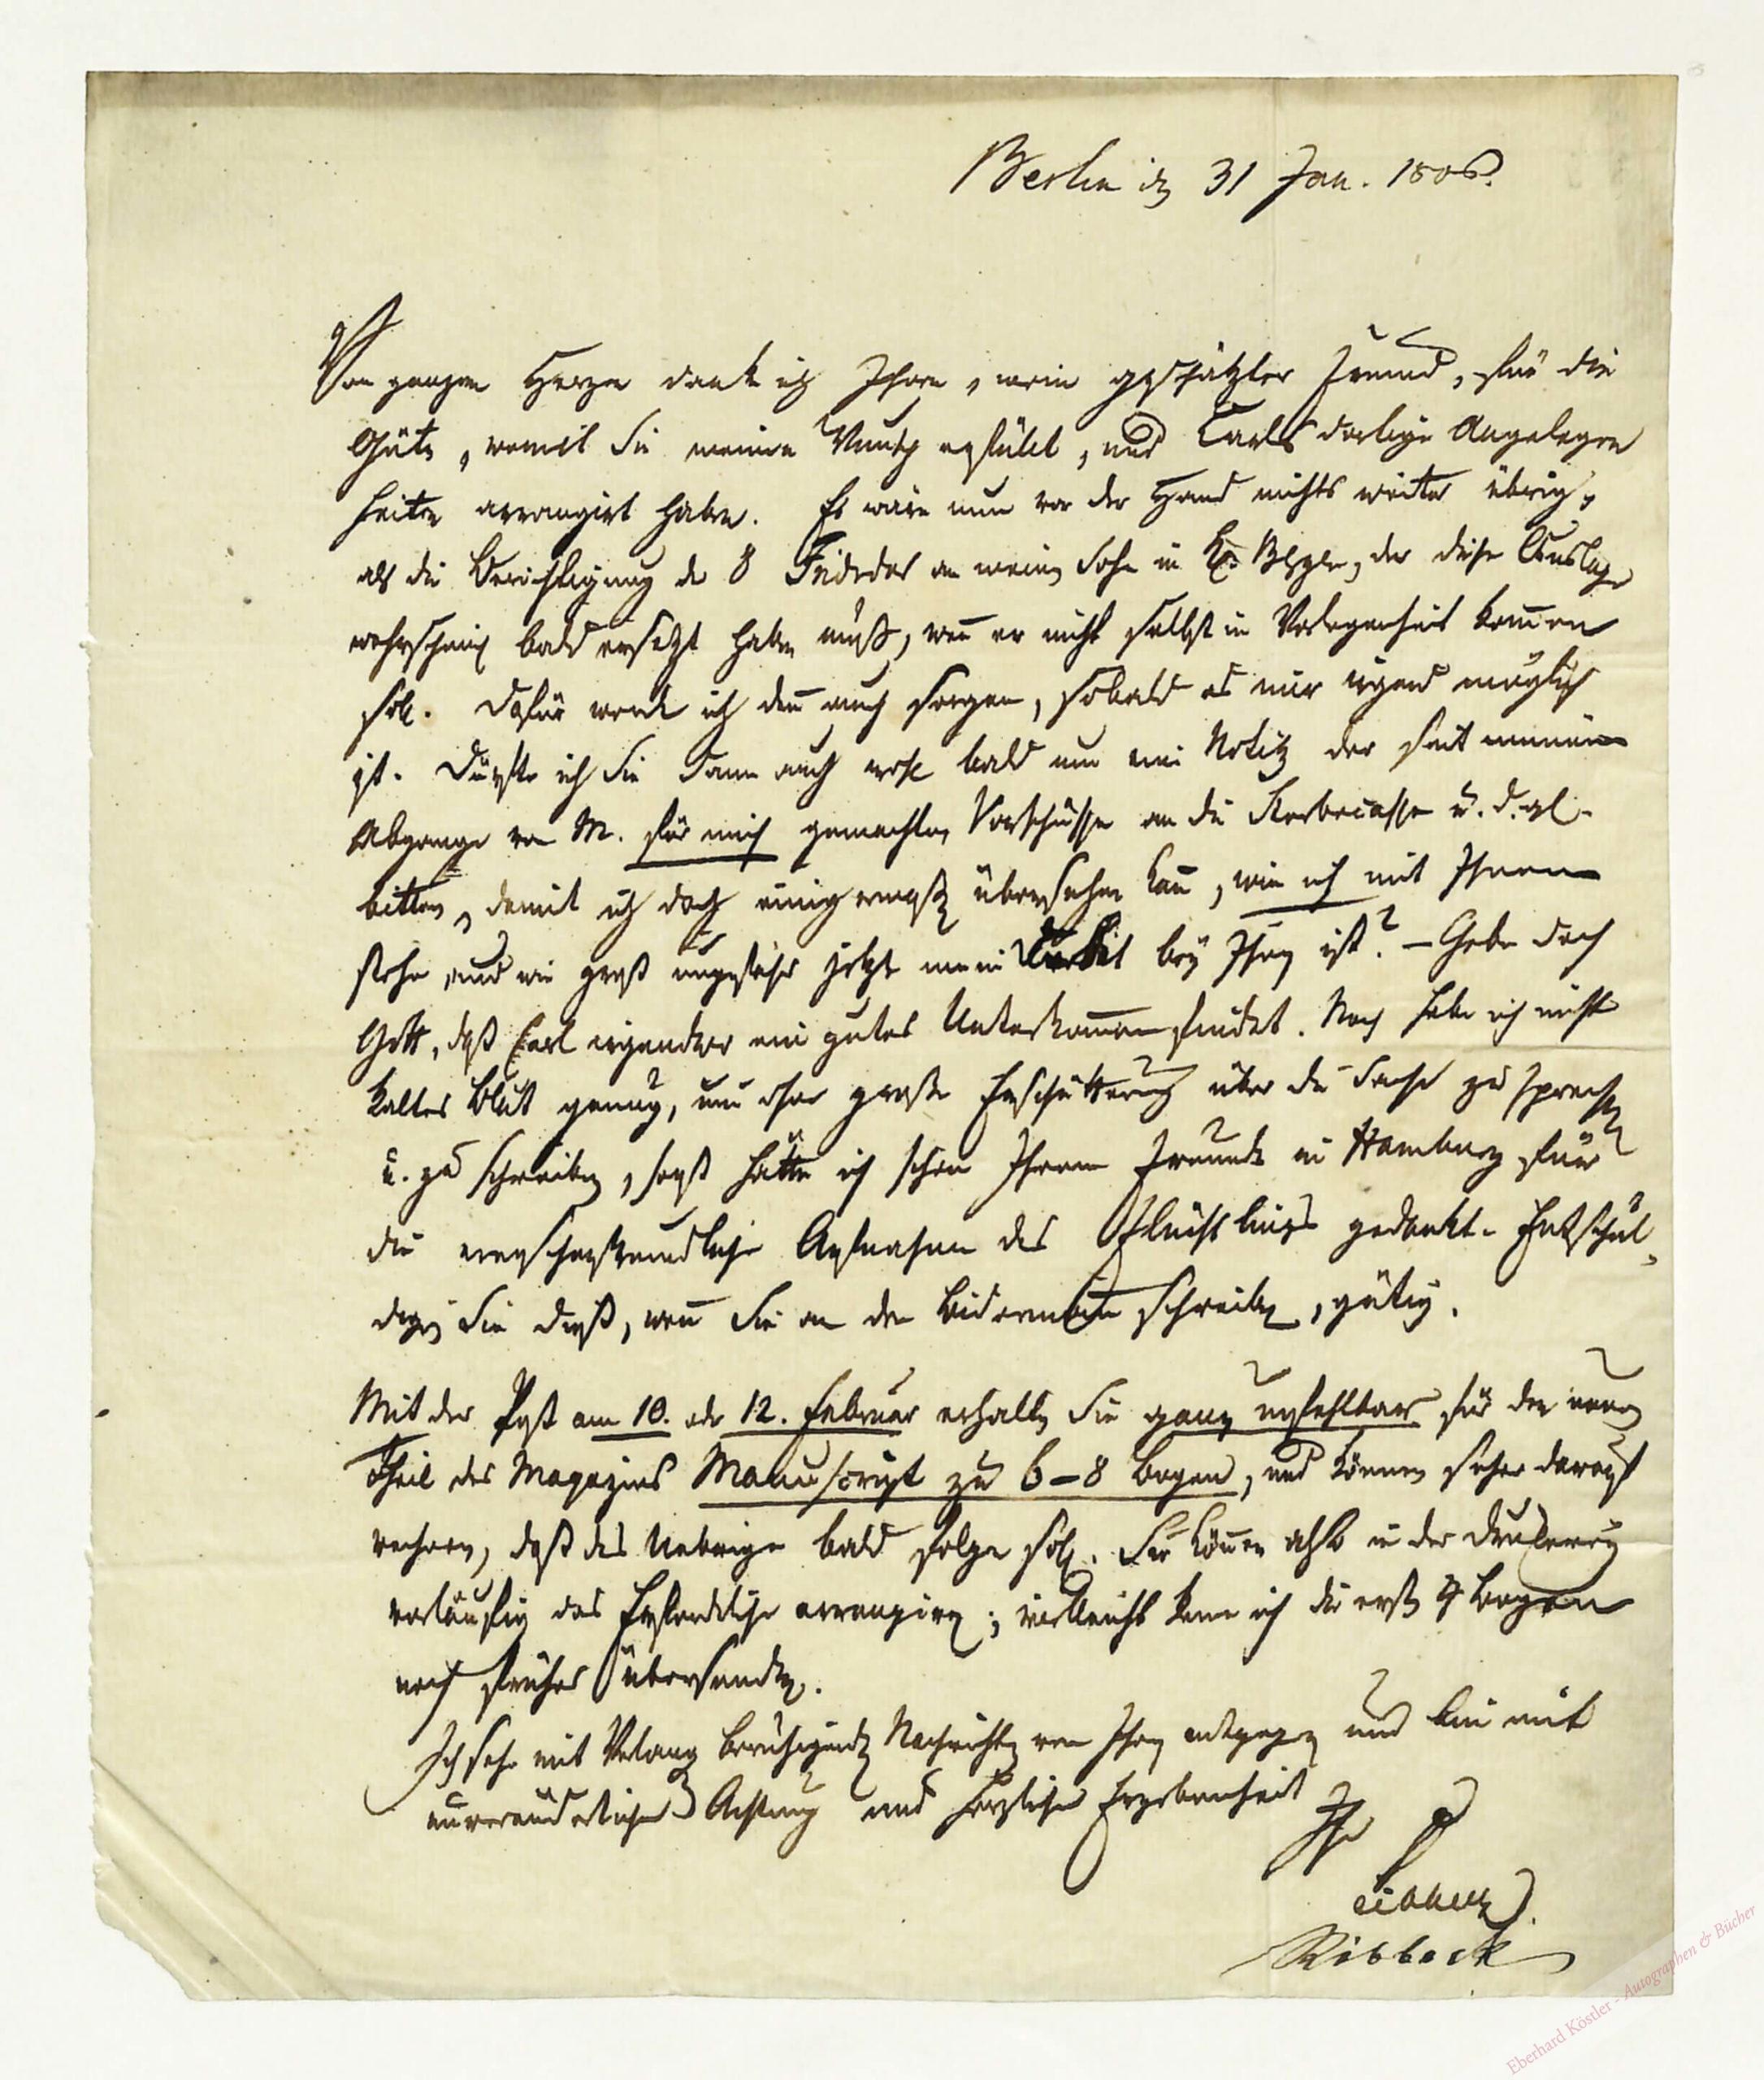 Berlin d 31 Jan. 1806.
Von ganzem Herzen danke ich Ihnen, mein geschätzter Freund, für die
Güte, womit Sie meinen Wunsch erfüllt, und Carls dortige Angelegen
heiten arrangirt haben. Es wäre nun vor der Hand nichts weiter übrig,
als die Berichtigung der 8 Fridrdor an meinen Sohn in Kl. der diese Auslage
wahrscheinl bald ersetzt haben muß, wenn er nicht selbst in Verlegenheit kommen
soll. Dafür werde ich denn auch sorgen, sobald es mir irgend möglich
ist. Dürfte ich Sie dann auch wohl bald um eine Notiz der seit meinem
Abgange von M. für mich gemachten Vorschüsse an die Sterbecasse u. d. gl.
bitten, damit ich doch einigermaßen übersehen kann, wie ich mit Ihnen
stehe, und wie groß ungefähr jetzt mein Debet bey Ihnen ist? – Gebe doch
Gott, daß Carl irgendwo ein gutes Unterkommen findet. Noch habe ich nicht
kaltes Blut genug, um ohne große Erschütterung über die Sache zu sprechen
u. zu schreiben, sonst hätte ich schon Ihrem Freunde in Hamburg für
die menschenfreundliche Aufnahme des Flüchtlings gedankt. Entschul
digen Sie dieß, wenn Sie an den Biedermann schreiben, gütig.
Mit der Post am 10. oder 12. Februar erhalten Sie ganz unfehlbar für den neuen
Theil des Magazins Manuscript zu 6–8 Bogen, und können sicher darauf
rechnen, daß das Uebrige bald folgen soll. Sie können also in der Druckerey
vorläufig das Erforderliche arrangiren; vielleicht kann ich die ersten 4 Bogen
noch früher übersenden.
Ich sehe mit Verlangen beruhigenden Nachrichten von Ihnen entgegen und bin mit
unveränderlicher Achtung und herzlicher Ergebenheit
Ihr
Ribbeck
Eberhard Köstler - Autographen & Bücher